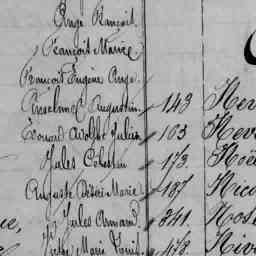 Ange François.
François Marie
François Eugène Ange.
Anselme Augustin. 143 Her
Edouard Adolphe Julien 163 Herv
Jules Célestin 173 Hoë
Auguste Désiré Marie. 187 Hico
Jules Armand 241 Hos
Marie 478. Hiv